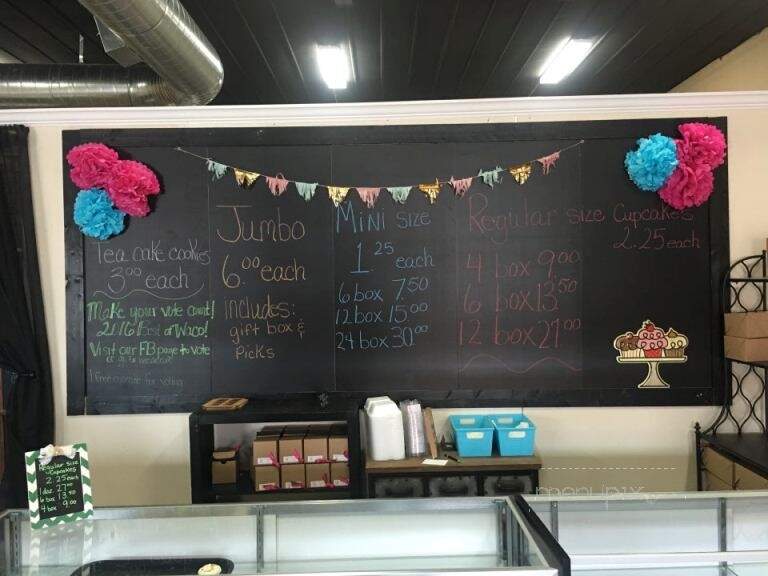 Tea cake cookies
3.00 each
Make your vote count!
2016 Best of Waco!
Visit our FB page to vote
1 Free cupcake for voting
Jumbo
6.00 each
includes:
gift box &
Picks
Mini size
1.25 each
6 box 7.50
12 box 15.00
24 box 30.00
Regular size Cupcakes
2.25 each
4 box 9.00
6 box 13.50
12 box 27.00
Regular size
Cupcakes
2.25 each
1 doz 27.00
6 box 13.50
4 box 9.00
menupix